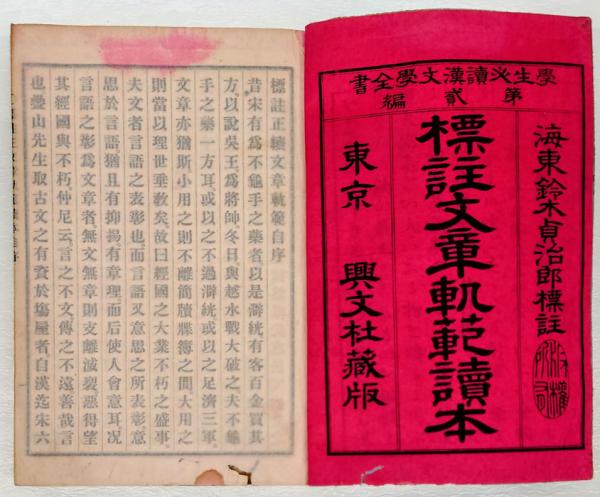 學生必讀漢文學全書
第貳編
海東鈴木貞治郎標註
版權所有
標註文章軌範讀本
東京　興文社藏版
標註正續文章軌範自序
昔宋有爲不龜手之藥者以是澼絖有客百金買其
方、以說吳王爲將帥、冬日與越水戰大破之夫不龜
手之藥一方耳、或以之不過澼絖或以之足濟三軍、
文章亦猶斯、小用之則不離簡牘牒簿之間大用之
則當以理世垂敎矣故曰經國之大業不朽之盛事、
夫文者言語之表彰也、而言語又意思之所表彰、意
思於言語、猶且有抑揚、有章理而后使人會意、耳況
言語之彰爲文章者無文無章則支離滅裂惡得望
其經國與不朽、仲尼云、言之不文、傳之不遠善哉言
也疊山先生取古文之有資於塲屋者、自漢迄宋六